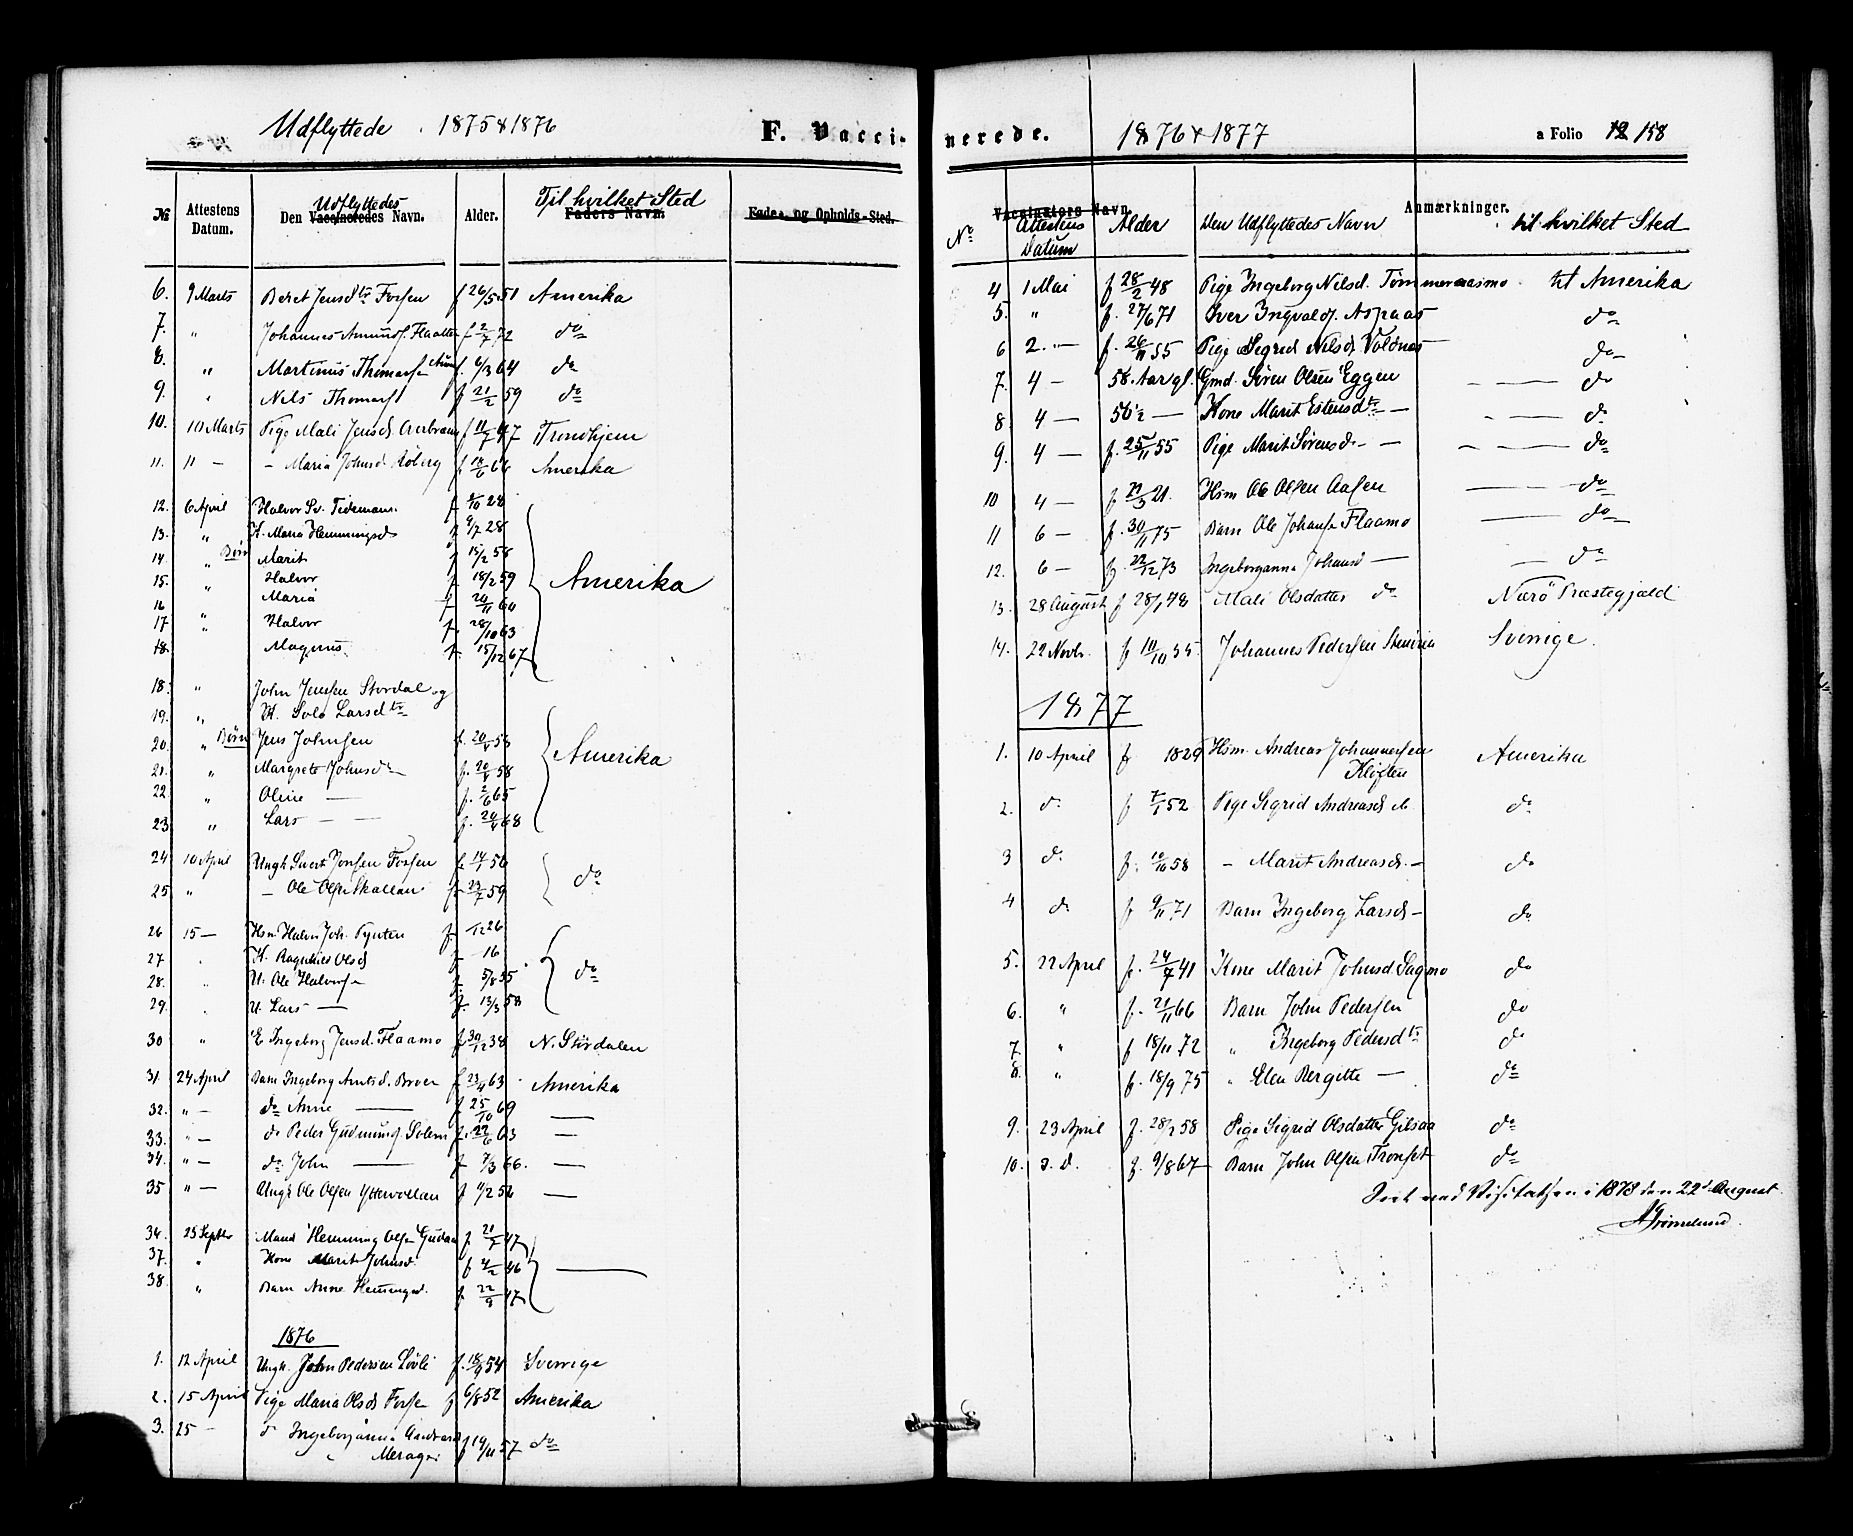 Udflyttede 1875 & 1876
F. Vacci-
Udflyttedes
Til hvilket Sted
№ Attestens Datum. Den Vaccineredes Navn. Alder. Faders Navn. Føde- og Opholds-Sted.
6. 9 Marts Beret Jensdtr Forsen f 26/5 51 Amerika
7. " Johannes Amunds. Flaatten f 2/7 72 do
8. " Martinus Thomass. f. 6/3 64 do
9. " Nils Thomass f 21/2 59 do
10. 10 Marts Pige Mali Jensd. f 11/7 47 Trondhjem
11. 11 — - Maria Johnsd. f 14/6 66 Amerika
12. 6 April Halvor Sv. Tidemann f 2/10 28
13. " K. Maria Hemmingsd f 9/7 28
14 " Børn Marit f 15/2 58
15. " Halvor f 18/2 59 Amerika
16 Maria f 20/11 60
17 " Halvor f. 28/10 63
18. " Magnus f. 15/12 67
18. " John Jensen Stordal og
19. " K. Solo Larsdtr
20. " Børn Jens Johnsen f. 20/ 55
21. " Margrete Johnsd f. 20/ 58 Amerika
22 " Oline — f. 2/6 65
23 " Lars — f. 20/ 68
24 10 April Ungk Sivert Jonsen Forsen f. 14/ 56
25 " — Ole Olsen Skallan f. 23/7 59 do
26 15 — Hsm. Halvor Joh. Pynten f. /12 26
27 . K. Olsd f — 16
28. " U. Ole Halvors f. 5/8 55 do
29. . U. Lars — f. 13/3 58
30 " E Ingeborg Jensd. Flaamo f 30/12 38 N. Stördalen
31. 24 April Barn Ingeborg Arntsd. Broen f 23/4 63 Amerika
32. " — do Anne — f 25/10 69 —
33. " — do Peder Gudmunds. Solem f. 22/6 63 —
34. " — do John — f 7/3 66. —
35 " — Ungk Ole Olsen Yttervollan f 4/2 56 —
34. 25 Septbr Mand Hemming Olsen Gudaa f 21/7 47
37. " Kone Marit Johnsd. f 4/2 46 —
38. " Barn Anne Hemmingsd. f 22/9 47
1876
1. 12 April Ungk. John Pedersen Lövli f. 18/9 54 Sverrige
2. 15 April Pige Maria Olsd Forse f 6/8 52 Amerika
3. 25 — do Ingeborganna f 19/11 57 do
Merager
nerede.
1876 & 1877
a Folio 12 158
Vaccinators Navn. Anmærkninger.
No Attestens Datum Alder Den Udflyttedes Navn til hvilket Sted
4 1 Mai f 28/2 48 Pige Ingeborg Nilsd. Tømmeraasmo til Amerika
5. " f. 27/6 71 Iver Ingvalds. Aspaas do
6 2. — f. 26/11 55 Pige Sigrid Nilsd. Voldnes do
7. 4 — 58 Aar gl. Gmd. Sören Olsen Eggen — do
8 4 — 56 1/2 — Kone Marit Estensdtr — — do
9. 4 — f. 25/11 55 Pige Marit Sörensd. — — do
10 4 — f 21/3 21. Hsm Ole Olsen Aasen — do
11 6 — f. 30/11 75 Barn Ole Johanse Flaamo — do
12. 6 — f. 22/12 73 Ingeborganna Johansd — — do
13. 28 August f 28/1 48 Mali Olsdatter do Nærö Præstegjæld
14. 22 Novb. f 10/10 35 Johannes Pedersen Sverige
1877
1. 10 April f 1829 Hsm. Andreas Johannessen Kløften Amerika
2. do f 7/1 52 Pige Sigrid Andreasd do
3 do f. 10/10 58 — Marit Andreasd. — do
4 do f 9/11 71 Barn Ingeborg Larsd — do
5. 22 April f. 24/7 41 Kone Marit Johnsd Sagmo do
6. " f. 21/11 66 Barn John Pedersen do
7 " f 18/11 72 " Ingeborg Pedersdtr do
8. " f. 18/9 75 " Elen Bergitte — do
9. 23 April f. 28/2 58 Pige Sigrid Olsdatter Gilsaa do
10. s. d. f. 9/8 67 Barn John Olsen Tronset do
Seet ved Visitatsen i 1878 den 22d August
Grimelund.